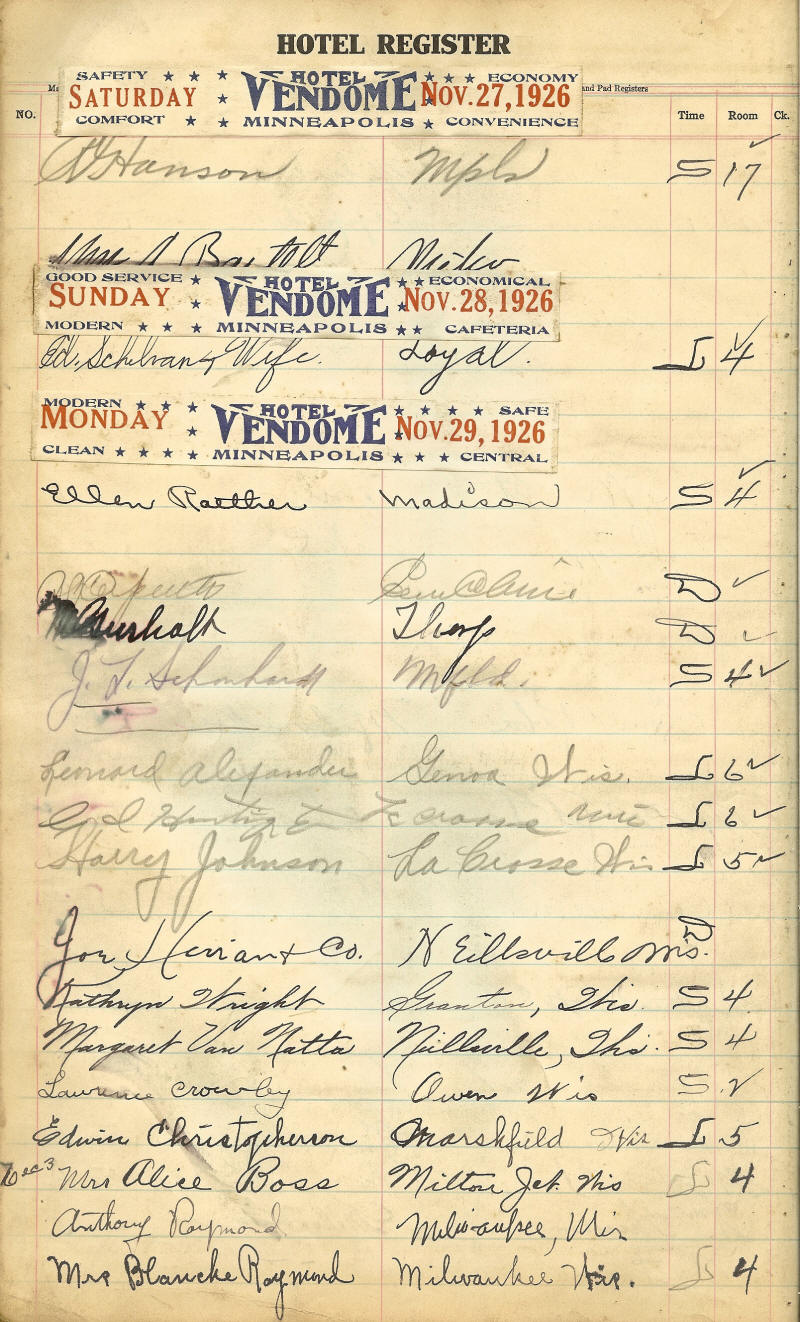 HOTEL REGISTER
and Pad Registers
SAFETY ★ ★ ★ HOTEL ★ ★ ★ ECONOMY
SATURDAY ★ VENDOME NOV. 27, 1926
COMFORT ★ ★ MINNEAPOLIS ★ CONVENIENCE
NO. Time Room Ck.
Hanson Mpls S 17 ✓
Mrs
GOOD SERVICE ★ HOTEL ★★ ECONOMICAL
SUNDAY ★ VENDOME NOV. 28, 1926
MODERN ★ ★ ★ MINNEAPOLIS ★★ CAFETERIA
Ed. & Wife. Loyal. L 4 ✓
MODERN ★ ★ ★ HOTEL ★ ★ ★ ★ SAFE
MONDAY ★ VENDOME NOV. 29, 1926
CLEAN ★ ★ ★ ★ MINNEAPOLIS ★ ★ ★ CENTRAL
Ellen Raether Madison S 4 ✓
Eau Claire D ✓
Thorp D ✓
J. L. Schonhardt Mfld. S 4 ✓
Leonard Alexander Genoa Wis. L 6 ✓
La crosse L 6 ✓
Harry Johnson La Crosse Wis L 5 ✓
Joe & Co. NEillsville Wis. D
Kathryn Wright Granton, Wis. S 4
Margaret Van Natta Neillsville, Wis. S 4
Lawrence Crowley Owen Wis S
Edwin Christopherson Marshfield Wis L 5
Dec 3 Mrs Alice Boss Milton Jct. Wis L 4
Anthony Raymond Milwaukee, Wis
Mrs Blanche Raymond Milwaukee Wis. L 4